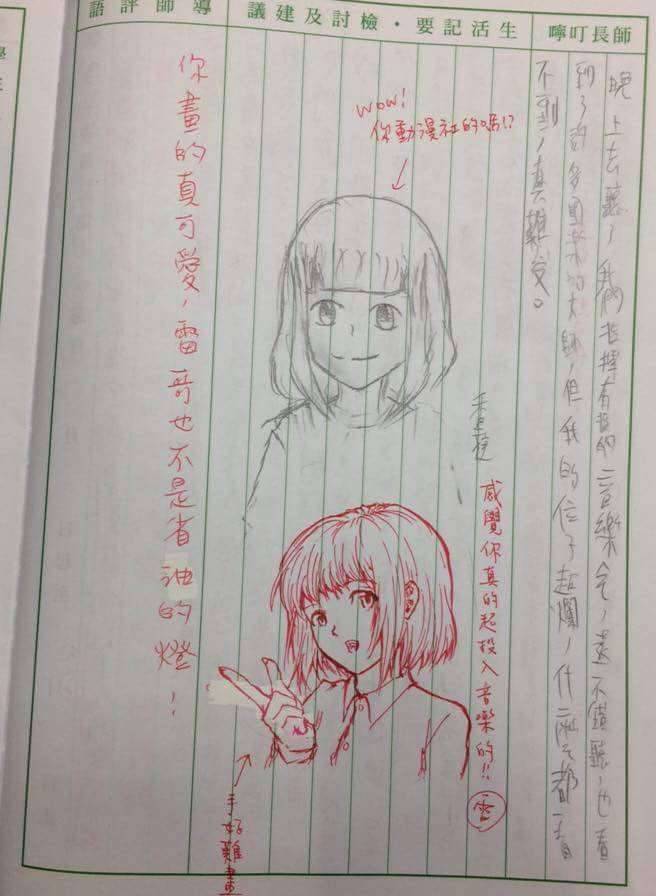 師長叮嚀
生活記要・檢討及建議
導師評語
晚上去聽了我
音樂會，還不錯聽，也看
到了許多國
的大師，但我的位子超爛，什麼都看
不到，真難受。
wow!
你動漫社的嗎!?
感覺你真的超投入音樂的!!
雷
手好難畫
你畫的真可愛，雷哥也不是省油的燈！